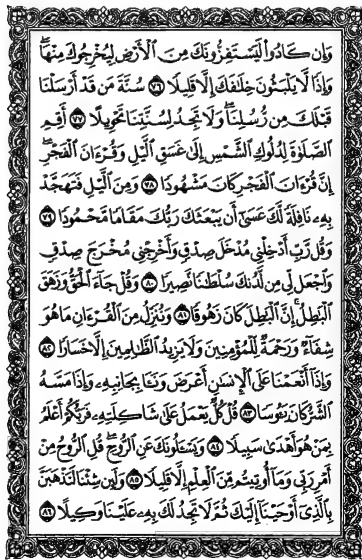 وَإِن كَادُواْ لَيَسْتَفِزُّونَكَ مِنَ ٱلْأَرْضِ لِيُخْرِجُوكَ مِنْهَاۖ
وَإِذًا لَّا يَلْبَثُونَ خِلَٰفَكَ إِلَّا قَلِيلًا ٧٦ سُنَّةَ مَن قَدْ أَرْسَلْنَا
قَبْلَكَ مِن رُّسُلِنَاۖ وَلَا تَجِدُ لِسُنَّتِنَا تَحْوِيلًا ٧٧ أَقِمِ
ٱلصَّلَوٰةَ لِدُلُوكِ ٱلشَّمْسِ إِلَىٰ غَسَقِ ٱلَّيْلِ وَقُرْءَانَ ٱلْفَجْرِۖ
إِنَّ قُرْءَانَ ٱلْفَجْرِ كَانَ مَشْهُودًا ٧٨ وَمِنَ ٱلَّيْلِ فَتَهَجَّدْ
بِهِۦ نَافِلَةً لَّكَ عَسَىٰٓ أَن يَبْعَثَكَ رَبُّكَ مَقَامًا مَّحْمُودًا ٧٩
وَقُل رَّبِّ أَدْخِلْنِي مُدْخَلَ صِدْقٍ وَأَخْرِجْنِي مُخْرَجَ صِدْقٍ
وَٱجْعَل لِّي مِن لَّدُنكَ سُلْطَٰنًا نَّصِيرًا ٨٠ وَقُلْ جَآءَ ٱلْحَقُّ وَزَهَقَ
ٱلْبَٰطِلُۚ إِنَّ ٱلْبَٰطِلَ كَانَ زَهُوقًا ٨١ وَنُنَزِّلُ مِنَ ٱلْقُرْءَانِ مَا هُوَ
شِفَآءٌ وَرَحْمَةٌ لِّلْمُؤْمِنِينَ وَلَا يَزِيدُ ٱلظَّٰلِمِينَ إِلَّا خَسَارًا ٨٢
وَإِذَآ أَنْعَمْنَا عَلَى ٱلْإِنسَٰنِ أَعْرَضَ وَنَـَٔا بِجَانِبِهِۦ وَإِذَا مَسَّهُ
ٱلشَّرُّ كَانَ يَـُٔوسًا ٨٣ قُلْ كُلٌّ يَعْمَلُ عَلَىٰ شَاكِلَتِهِۦ فَرَبُّكُمْ أَعْلَمُ
بِمَنْ هُوَ أَهْدَىٰ سَبِيلًا ٨٤ وَيَسْـَٔلُونَكَ عَنِ ٱلرُّوحِۖ قُلِ ٱلرُّوحُ مِنْ
أَمْرِ رَبِّي وَمَآ أُوتِيتُم مِّنَ ٱلْعِلْمِ إِلَّا قَلِيلًا ٨٥ وَلَئِن شِئْنَا لَنَذْهَبَنَّ
بِٱلَّذِيٓ أَوْحَيْنَآ إِلَيْكَ ثُمَّ لَا تَجِدُ لَكَ بِهِۦ عَلَيْنَا وَكِيلًا ٨٦